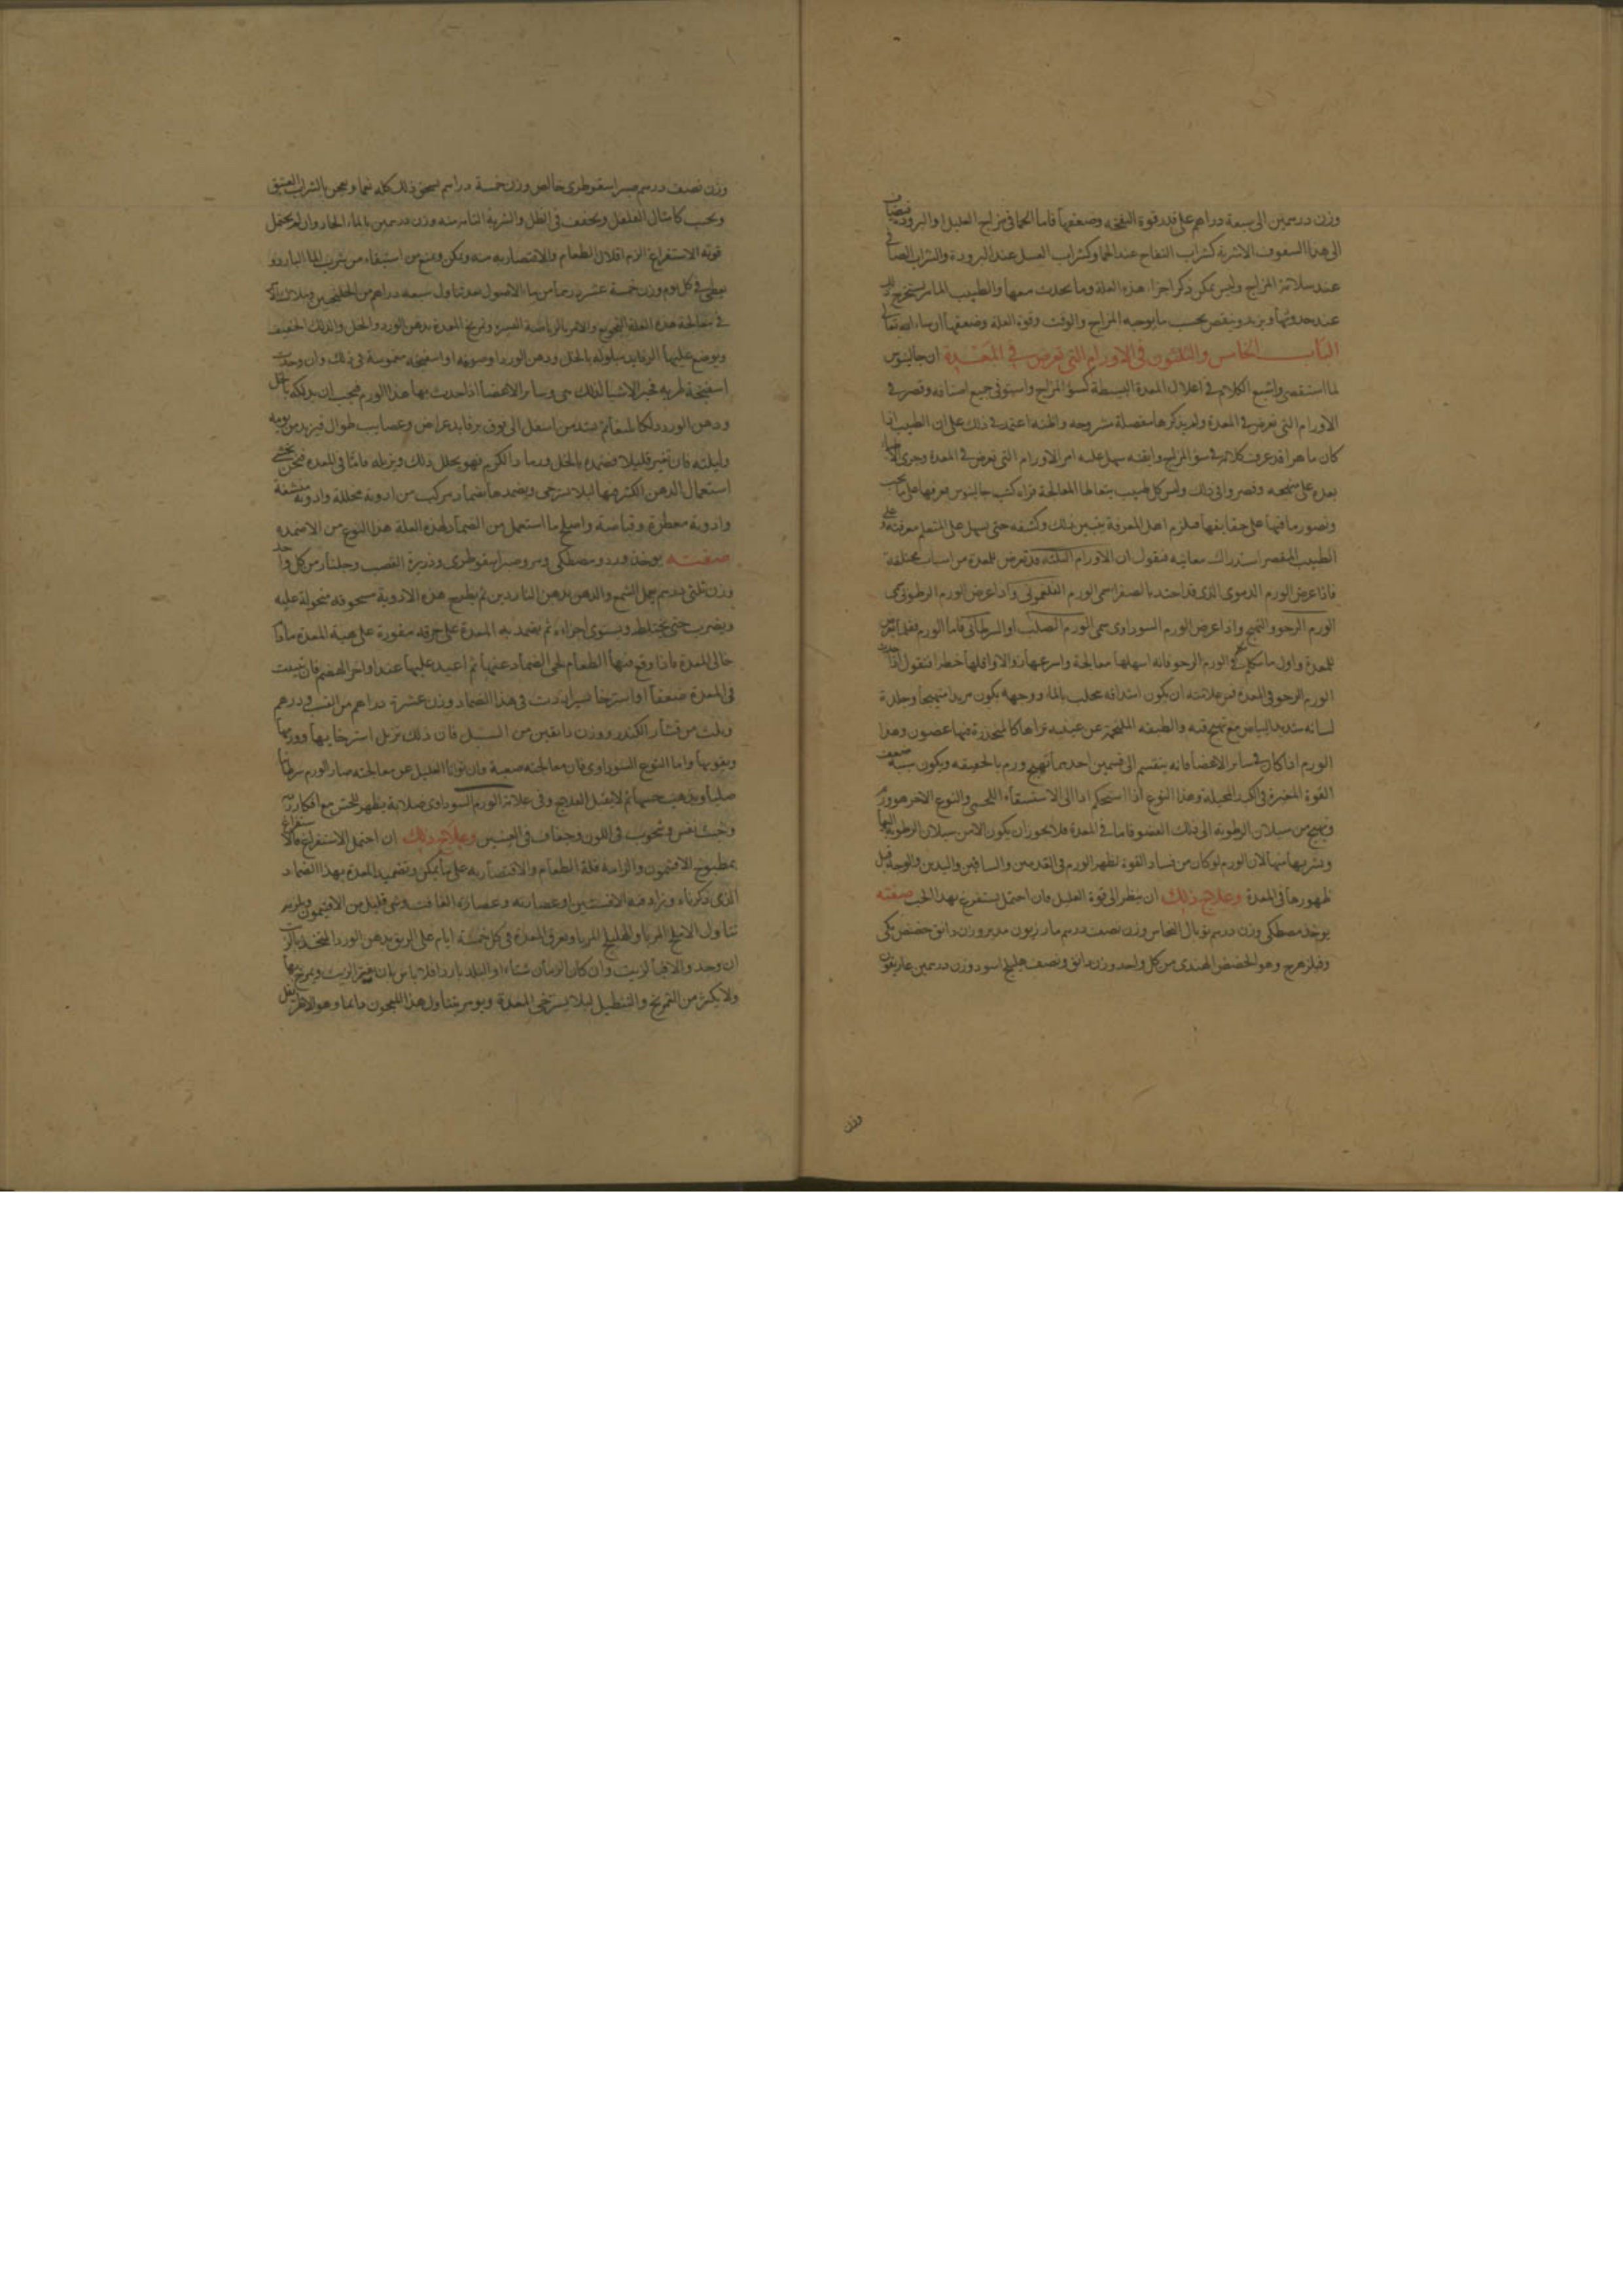 وزن درهمين الى سبعة دراهم على قدر قوة النفخه وضعفها فاما الحما في مزاج العليل او البروده فيضاف
الى هذا السفوف الاشربة كشراب التفاح عند الحما وكشراب العسل عند البرودة والشراب الصافي
عند سلامة المزاج وليس يمكن ذكر اجزاء هذه العلة وما يحدث معها والطبيب الماهر يستخرج ذلك
عند حدوثها ويزيد وينقص بحسب ما يوجبه المزاج والوقت وقوة العلة وضعفها ان شاء الله تعالى
الباب الخامس والثلثون في الاورام التي تعرض في المعدة ان جالينوس
لما استقصى واشبع الكلام في اعلال المعدة البسيطة كسؤ المزاج واستوفى جميع اصنافه وقصر في
الاورام التي تعرض في المعدة ولم يذكرها مفصلة مشروحه واظنه اعتمد في ذلك على ان الطبيب اذا
كان ماهرا قد عرف كلامه في سؤ المزاج واتقنه سهل عليه امر الاورام التي تعرض في المعدة وجرى
بعده على منهجه وقصروا في ذلك وليس كل طبيب يتعاطا المعالجة قراء كتب جالينوس وعرفها على ما يجب
وتصور ما فيها على حقايقها فيلزم اهل المعرفة تبيين ذلك وكشفه حتى يسهل على المتعلم معرفته وعلى
الطبيب المقصر استدراك معانيه فنقول ان الاورام الثلثه قد تعرض للمعدة من اسباب مختلفة
فاذا عرض الورم الدموى الذى قد احتد بالصفرا سمى الورم الفلغمونى واذا عرض الورم الرطوبى سمى
الورم الرخو والتهيج واذا عرض الورم السوداوى سمى الورم الصلب او السرطانى فاما الورم فقلما يعرض
للمعدة واول ما نتكلم فى الورم الرخو فانه اسهلها معالجة واسرعها زوالا واقلها خطرا فنقول اذا حدث
الورم الرخو فى المعدة فمن علامته ان يكون اشدافه تحلب بالماء ووجهه يكون مربدا متهيجا وجلدة
لسانه شديد البياض مع تهيج فيه والطبقه الملتحمة عن عينيه تراها كالمنحدرة فيها غضون وهذا
الورم اذا كان فى ساير الاعضا فانه ينقسم الى قسمين احديهما تهيج ورم بالحقيقه ويكون سببه ضعف
القوة المغيرة فى الكبد المحيلة وهذا النوع اذا استحكم ادا الى الاستسقاء اللحمى والنوع الاخر هو ورم
وتهيج من سيلان الرطوبة الى ذلك العضو فاما فى المعدة فلا يجوز ان يكون الا من سيلان الرطوبة اليها
وتشربها منها لان الورم لو كان من فساد القوة لظهر الورم فى القدمين والساقين واليدين والوجه قبل
ظهورها فى المعدة وعلاج ذلك ان ينظر الى قوة العليل فان احتمل يستفرغ بهذا الحب صفته
يوخذ مصطكى وزن درهم توبال النحاس وزن نصف درهم مازريون مدبر وزن دانق حضض مكى
وفيلزهرج وهو الحضض الهندى من كل واحد وزن دانق ونصف هليلج اسود وزن درهمين غاريقون
وزن
وزن نصف درهم صبر اسقوطرى خالص وزن خمسة دراهم يسحق ذلك كله نعما ويعجن بالشراب العتيق
ويحبب كامثال الفلفل ويجفف فى الظل والشربة التامه منه وزن درهمين بالماء الحار وان لم يحتمل
قوته الاستفراغ الزم اقلال الطعام والاقتصار به منه ويمنع من استيفاء من شرب الما البارد و
يعطى فى كل يوم وزن خمسة عشر درهما من ماء الاصول بعد تناول سبعة دراهم من الخلنجبين وملاك الامر
فى معالجة هذه العلة التجويع والامر بالرياضة اليسيره وتمريخ المعدة بدهن الورد والخل والدلك الخفيف
ويوضع عليها الرفايد مبلوله بالخل ودهن الورد او صوفه او اسفنجه مغموسة فى ذلك وان وجدت
اسفنجة طريه فخير الاشيا لذلك هى وساير الاعضا اذا حدث بها هذا الورم فيجب ان يدلكه بالخل
ودهن الورد دلكا لطيفا ثم يشد من اسفل الى فوق برفايد عراض وعصايب طوال فيزيد من يومه
وليلته فان تغير قليلا فضمده بالخل ورماد الكرم فهو يحلل ذلك ويزيله فاما فى المعدة فنحن نخشى
استعمال الدهن الكثير فيها ليلا تسترخى ويضمدها بضماد مركب من ادوية محللة وادوية منشفة
وادوية معطرة وقباضة واصلح ما استعمل من الضماد لهذه العلة هذا النوع من الاضمده
صفته يوخذ ورد ومصطكى وسرو صبر اسقوطرى وذريرة القصب وجلنار من كل واحد
وزن ثلثى درهم يحل الشمع والدهن بدهن الناردين ثم يطرح هذه الادوية مسحوقه منخولة عليه
ويضرب حتى يختلط ويستوى اجزاءه ثم يضمد به المعدة على خرقه مقورة على هيئة المعدة مادا
خالى المعدة فاذا وقع فيها الطعام نحى الضماد عنها ثم اعيد عليها عند اواخر الهضم فان تبينت
فى المعدة ضعفا او استرخا ظهر زدت فى هذا الضماد وزن عشرة دراهم من القسب ودرهم
وثلث من قشار الكندر ووزن دانقين من السنبل فان ذلك يزيل استرخايها وورمها
ويقويها واما النوع السوداوى فان معالجته صعبة وان توانا العليل عن معالجته صار الورم سرطانا
صلبا ويذهب حسها ثم لا يقبل العلاج وفى علامة الورم السوداوى صلابة يظهر للحس مع افكار رديه
وخبث نفس وشحوب فى اللون وجفاف فى العينين وعلاج ذلك ان احتمل الاستفراغ فالاستفراغ
بمطبوخ الافتيمون والزامه قلة الطعام والاقتصار به على ما يمكن وتضميد المعدة بهذا الضماد
الذى ذكرناه ويزاد فيه الافسنتين او عصارته وعصارة الغافت وشى قليل من الافتيمون ويلزم
تناول الاملج المربا والهليلج المربا ويعرق المعدة فى كل خمسة ايام على الريق بدهن الورد المتخذ بالزيت
ان وجد والا فبالزيت وان كان الزمان شتاء او البلد باردا فلا باس بان يفتر الزيت ويمرخ بها
ولا يكثر من التمريخ والتنطيل ليلا يسترخى المعدة ويومر بتناول هذا المعجون دايما وهو الاطريفل